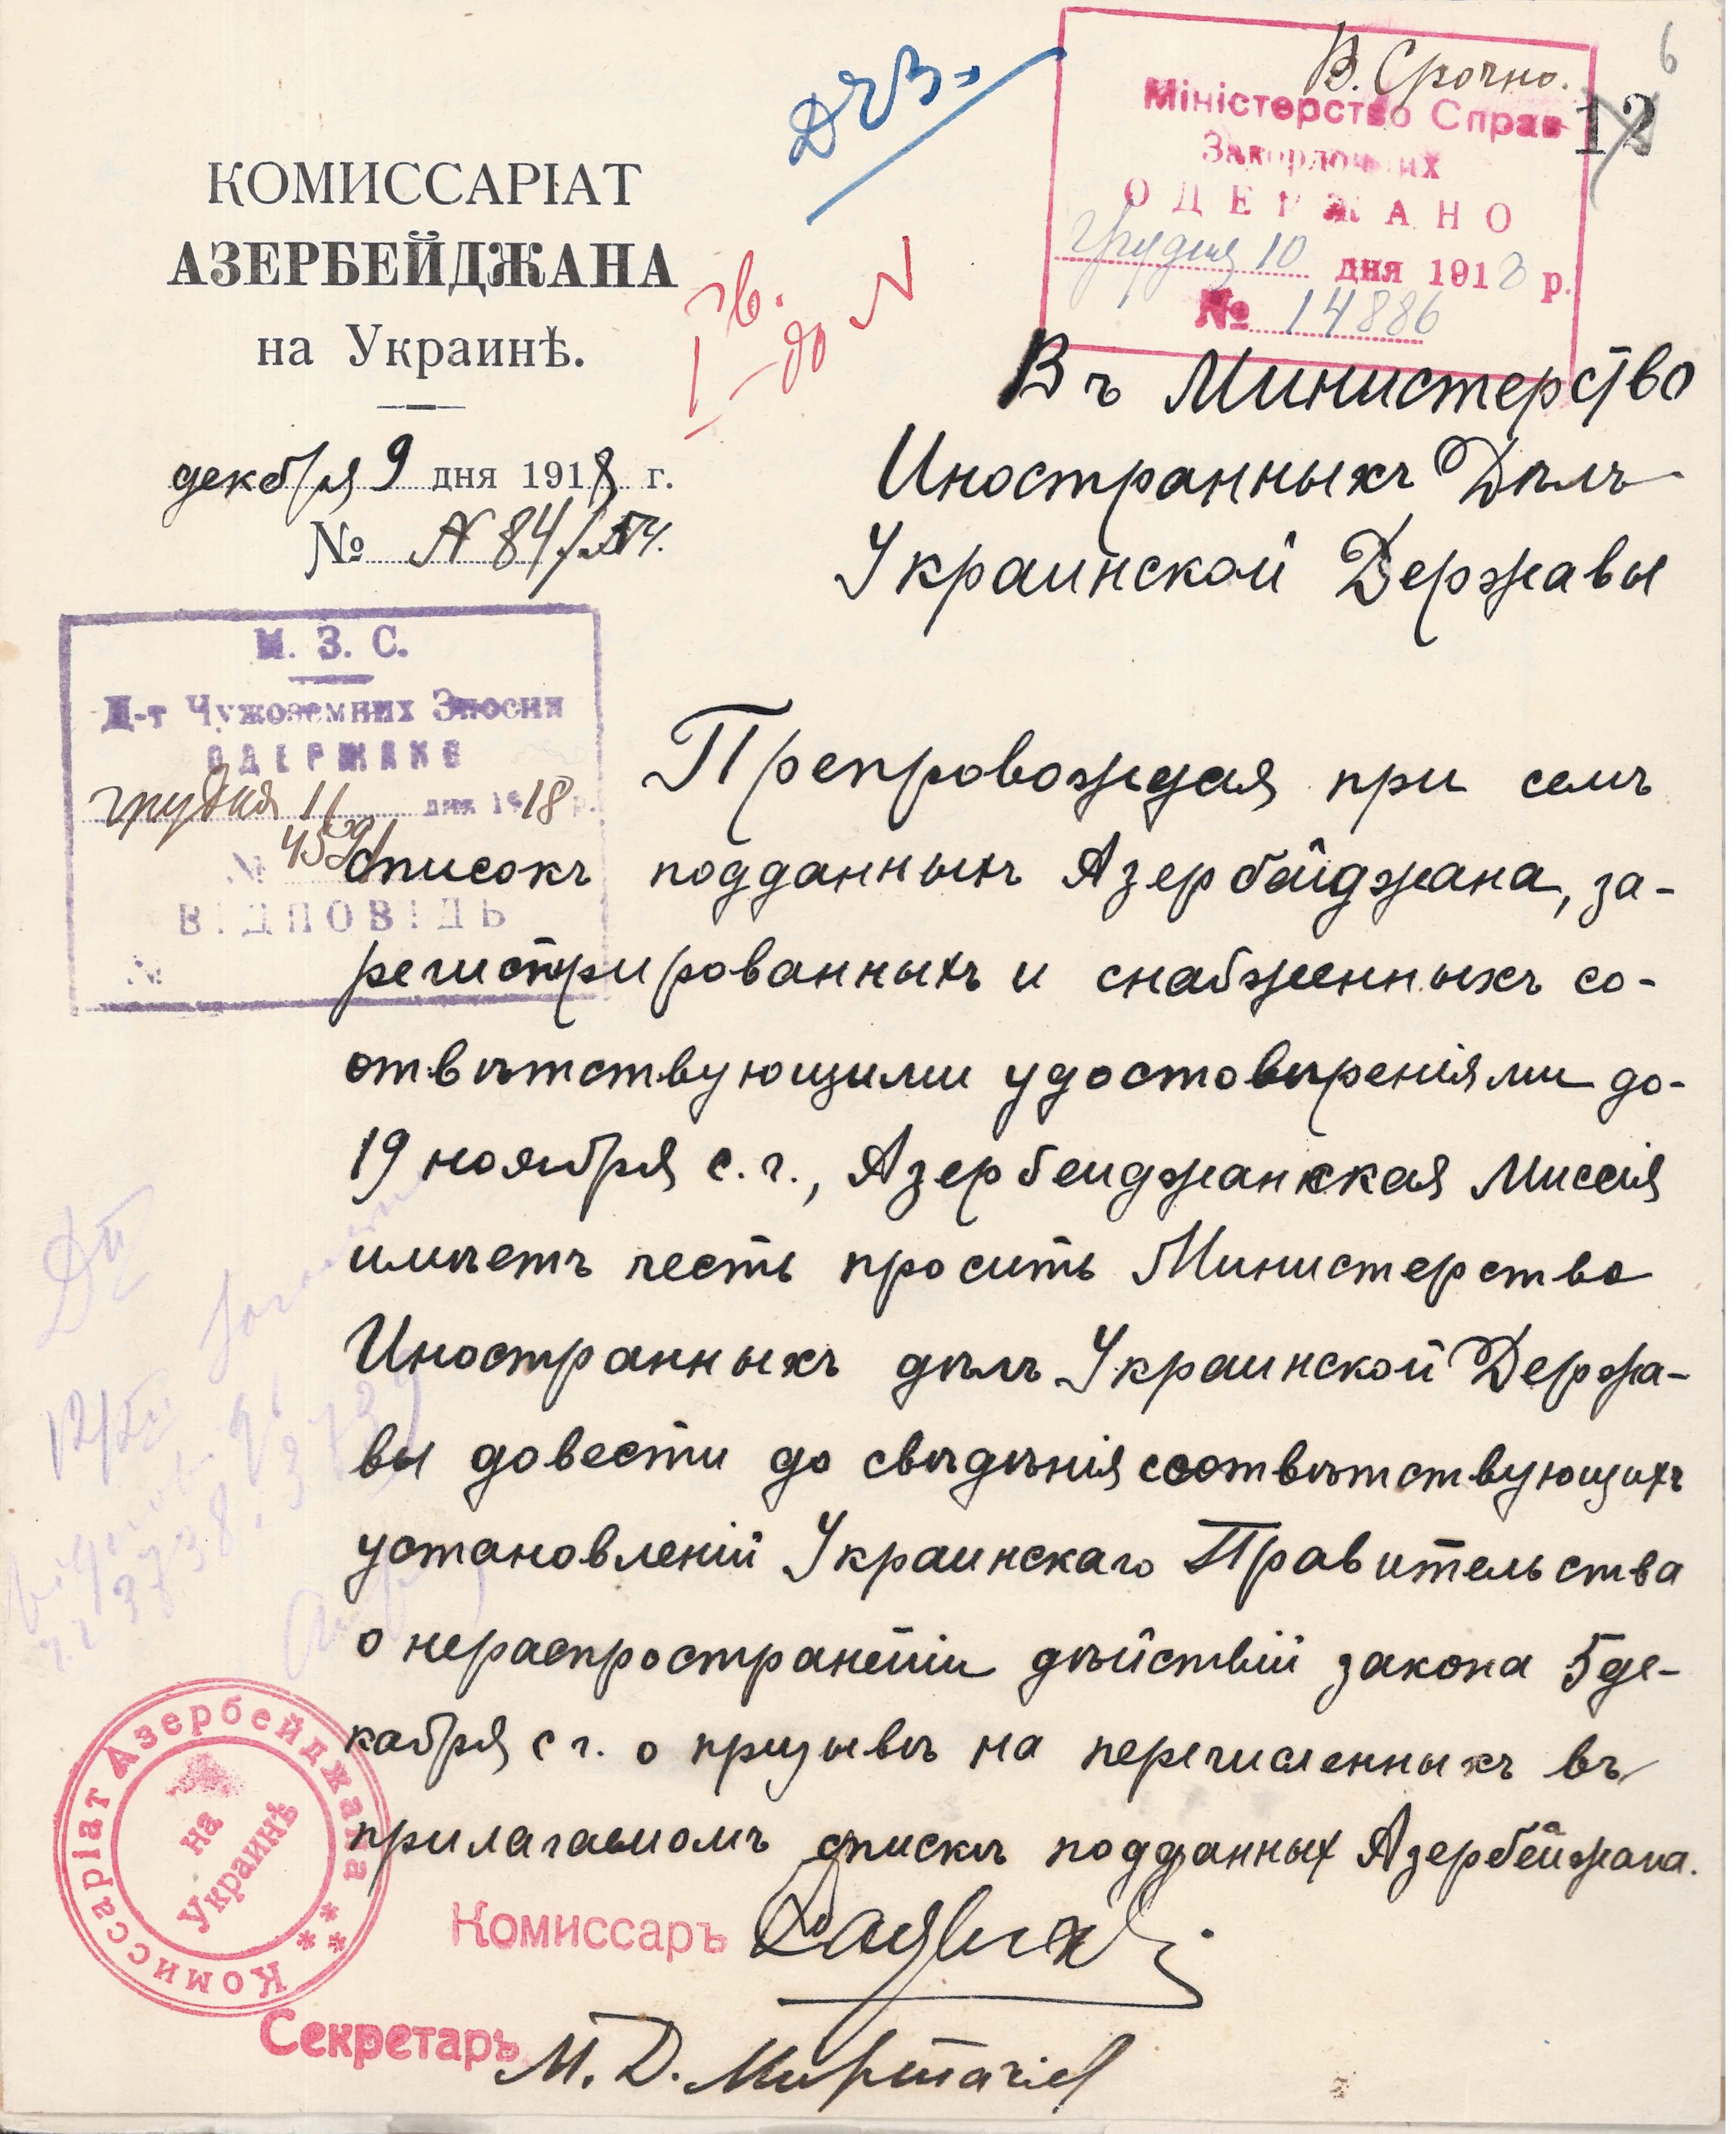 6
В. Срочно.
12
Міністерство Справ
Закордонних
ОДЕРЖАНО
грудня 10 дня 1918 р.
№ 14886
КОМИССАРІАТ
АЗЕРБЕЙДЖАНА
на Украинѣ.
декабря 9 дня 1918 г.
№ N 84
Въ Министерство
Иностранныхъ Дѣлъ
Украинской Державы
М. З. С.
Д-т Чужоземних Зносин
ОДЕРЖАНО
грудня 11 дня 1918 р.
№
ВІДПОВІДЬ
№
Препровождая при семъ
списокъ подданныхъ Азербайджана, за-
регистрированныхъ и снабженныхъ со-
отвѣтствующими удостовѣреніями до-
19 ноября с. г., Азербейджанская Миссія
имѣетъ честь просить Министерство
Иностранныхъ дѣлъ Украинской Держа-
вы довести до свѣдѣнія соотвѣтствующихъ
установленій Украинскаго Правительства
о нераспространеніи дѣйствій закона 5 де-
кабря с г. о призывѣ на перечисленныхъ въ
прилагаемомъ спискѣ подданных Азербейжана.
Комиссаріат Азербейджана
на
Украинѣ
Комиссаръ
Секретарь М. Д.